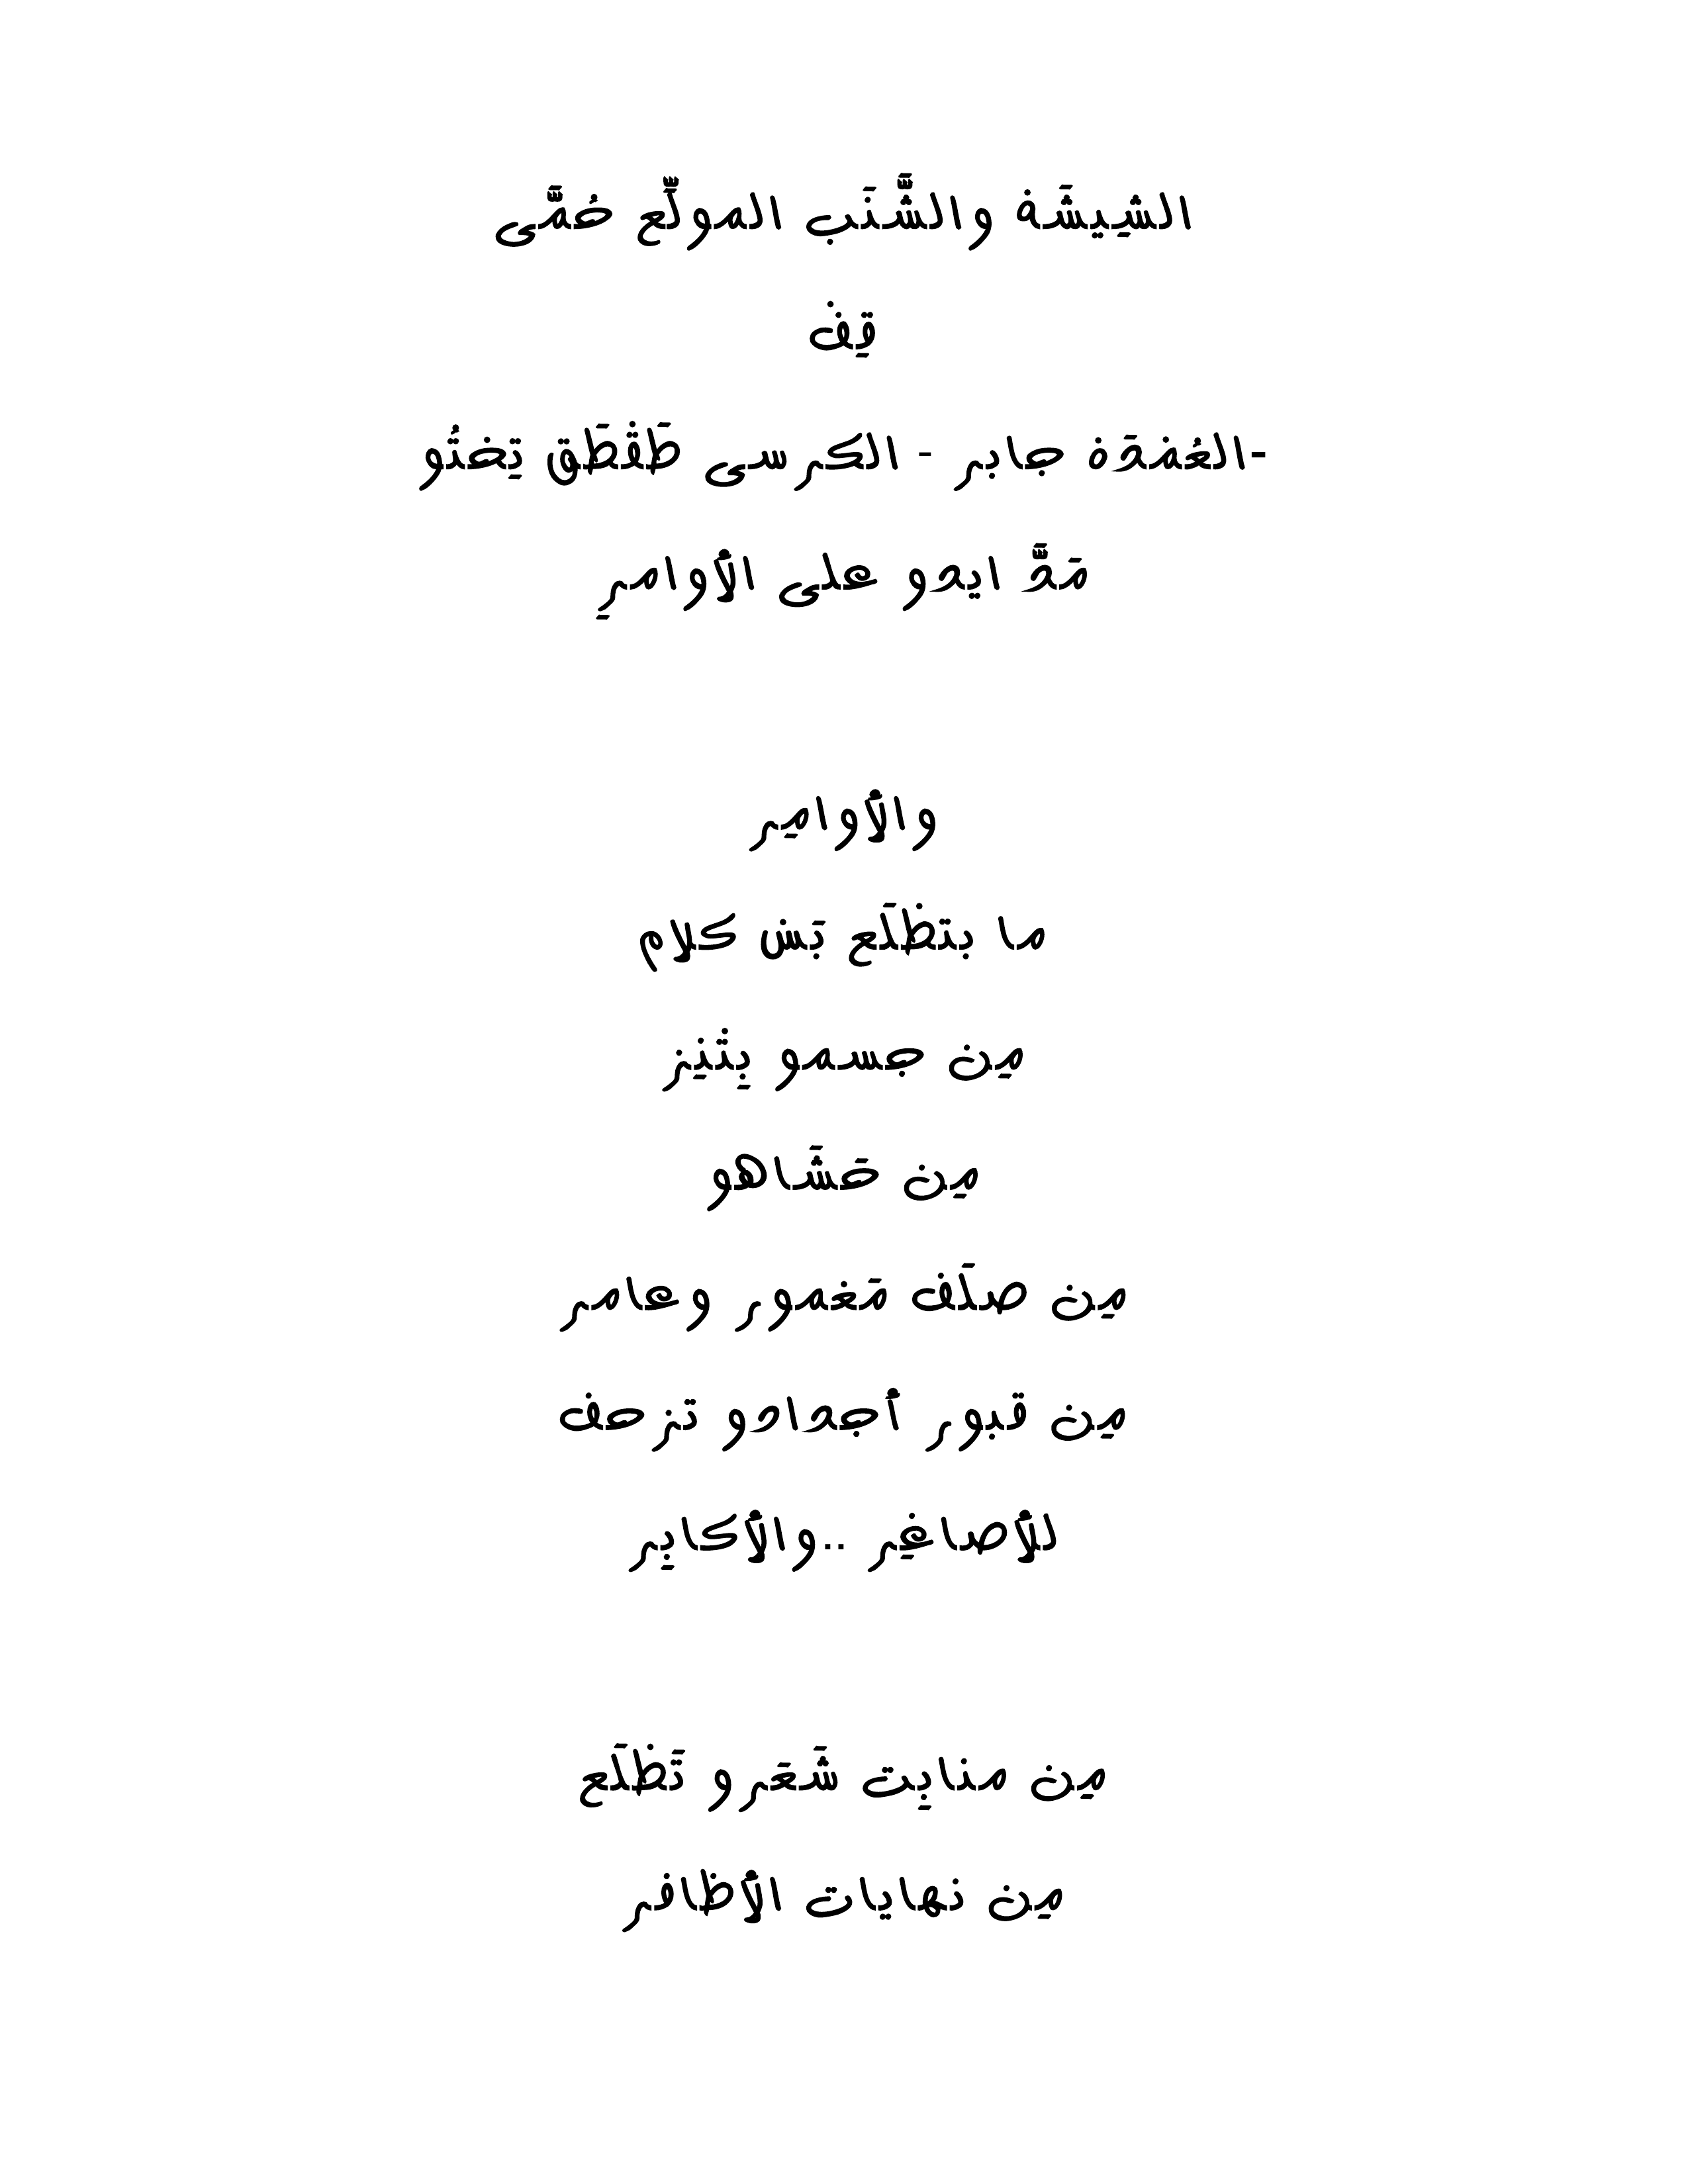 الشِيشَة والشَّنَب المولّع حُمَّى
قِف
-العُمْدَة جابر - الكرسى طَقْطَق تِحْتُو
مَدَّ ايدو على الأوامرِ
والأوامِر
ما بتطْلَع بَسْ كلام
مِن جسمو بِتْنِز
مِن حَشَاهو
مِن صلَف مَغمور وعامر
مِن قبور أجدادو تزحف
للأصاغِر ..والأكابِر
مِن منابِت شَعَرو تَطْلَع
مِن نهايات الأظافر